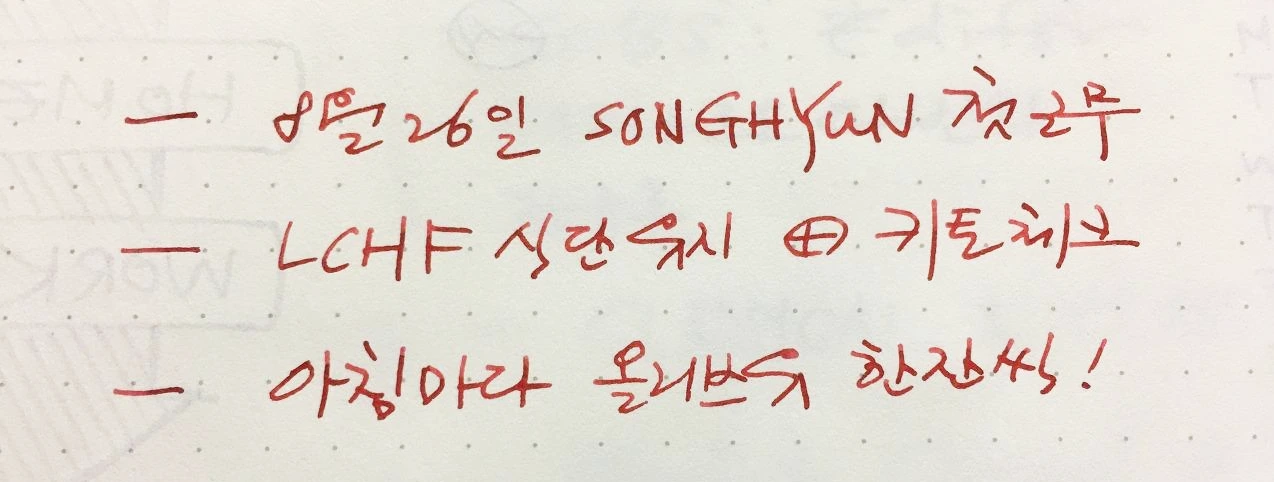 — 8월 26일 SONGHYUN 첫근무
— LCHF 식단유지 ⊕ 키토체브
— 아침마다 올리브유 한잔씩!
HOME
WORK